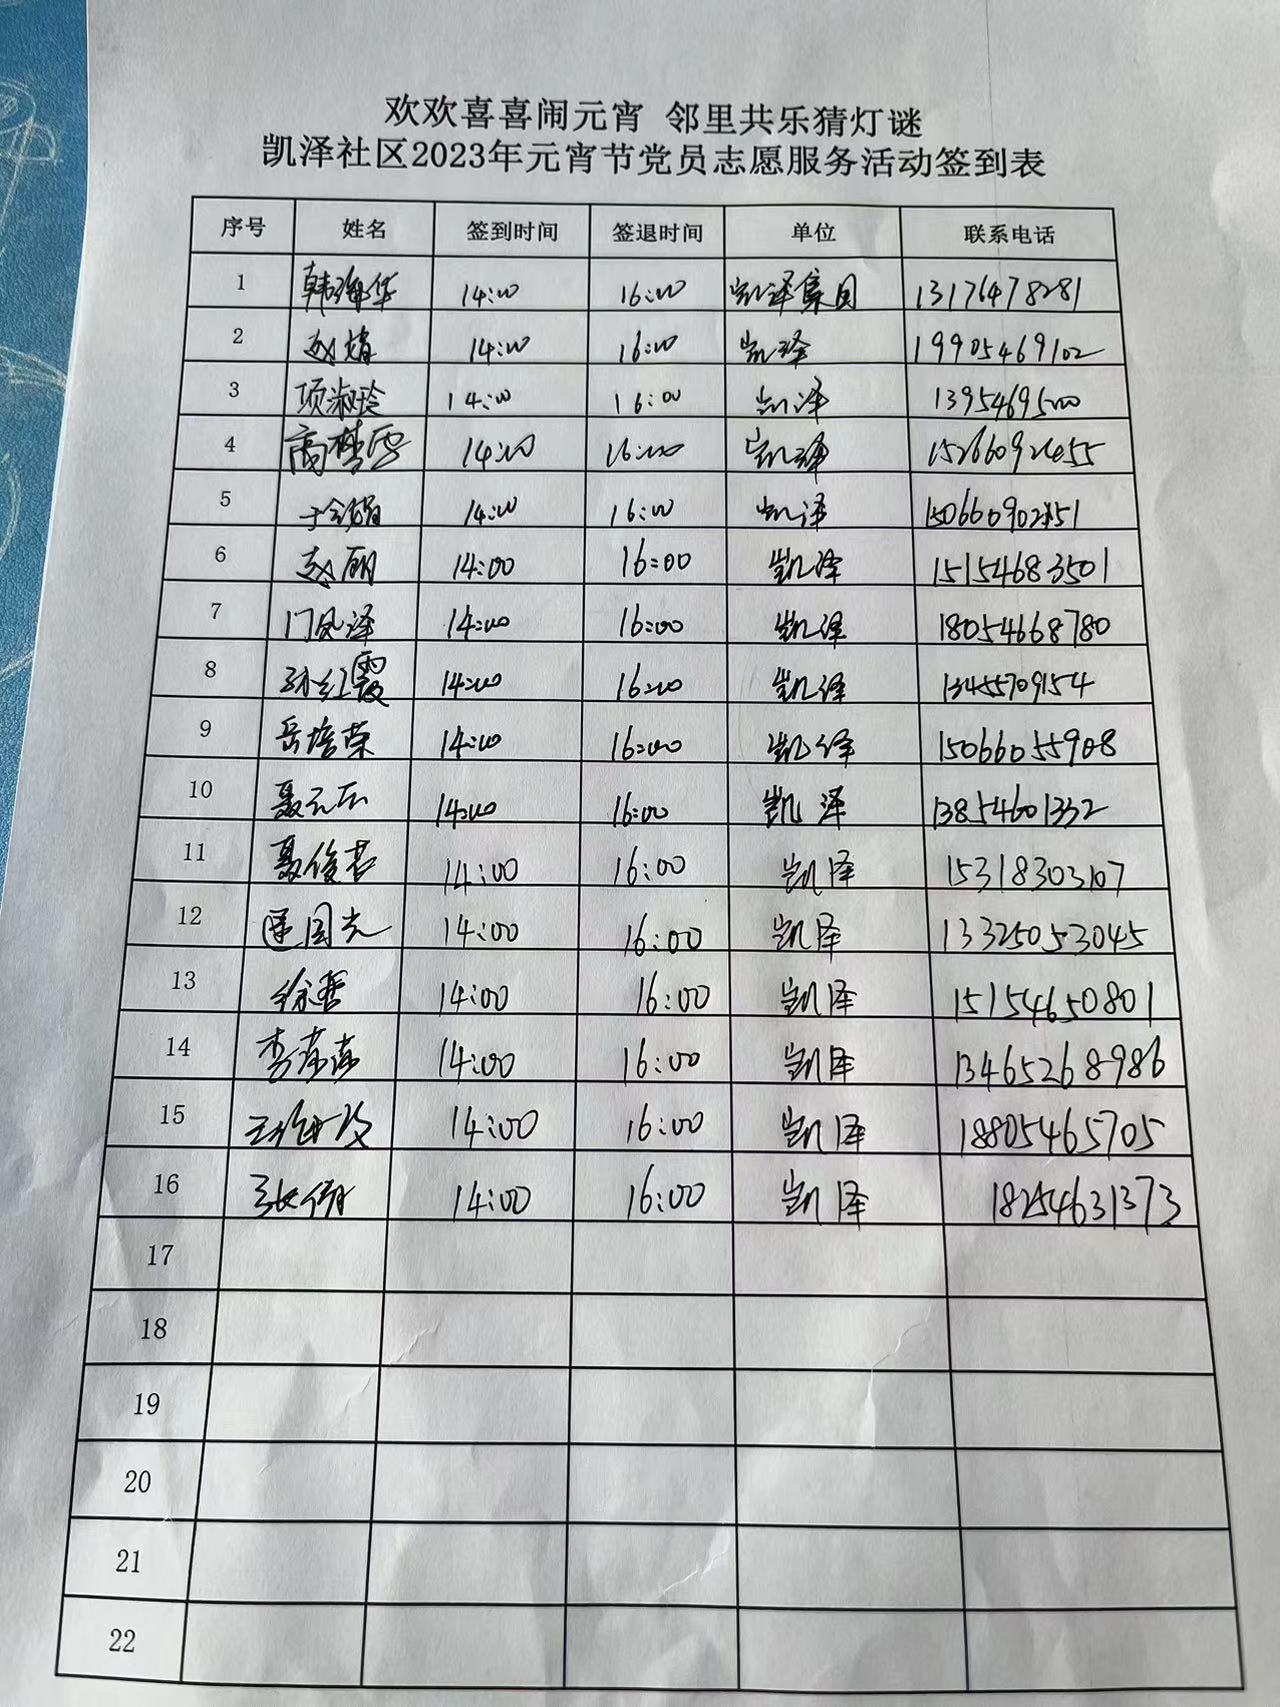 欢欢喜喜闹元宵 邻里共乐猜灯谜
凯泽社区2023年元宵节党员志愿服务活动签到表
序号 姓名 签到时间 签退时间 单位 联系电话
1 韩海华 14:00 16:00 凯泽集团 13176478281
2 赵娟 14:00 16:00 凯泽 19905469102
3 项淑玲 14:00 16:00 凯泽 13954695000
4 高梦雪 14:00 16:00 凯泽 15266092455
5 于会娟 14:00 16:00 凯泽
6 赵丽 14:00 16:00 凯泽 15154683501
7 门凤泽 14:00 16:00 凯泽 18054668780
8 孙红霞 14:00 16:00 凯泽 13455709154
9 岳培荣 14:00 16:00 凯泽 15066055908
10 聂元 14:00 16:00 凯泽 13854601332
11 聂俊若 14:00 16:00 凯泽 15318303107
12 国光 14:00 16:00 凯泽 13325053045
13 徐哲 14:00 16:00 凯泽 15154650801
14 李莎莎 14:00 16:00 凯泽 13465268986
15 14:00 16:00 凯泽 18805465705
16 张倩 14:00 16:00 凯泽 18254631373
17
18
19
20
21
22